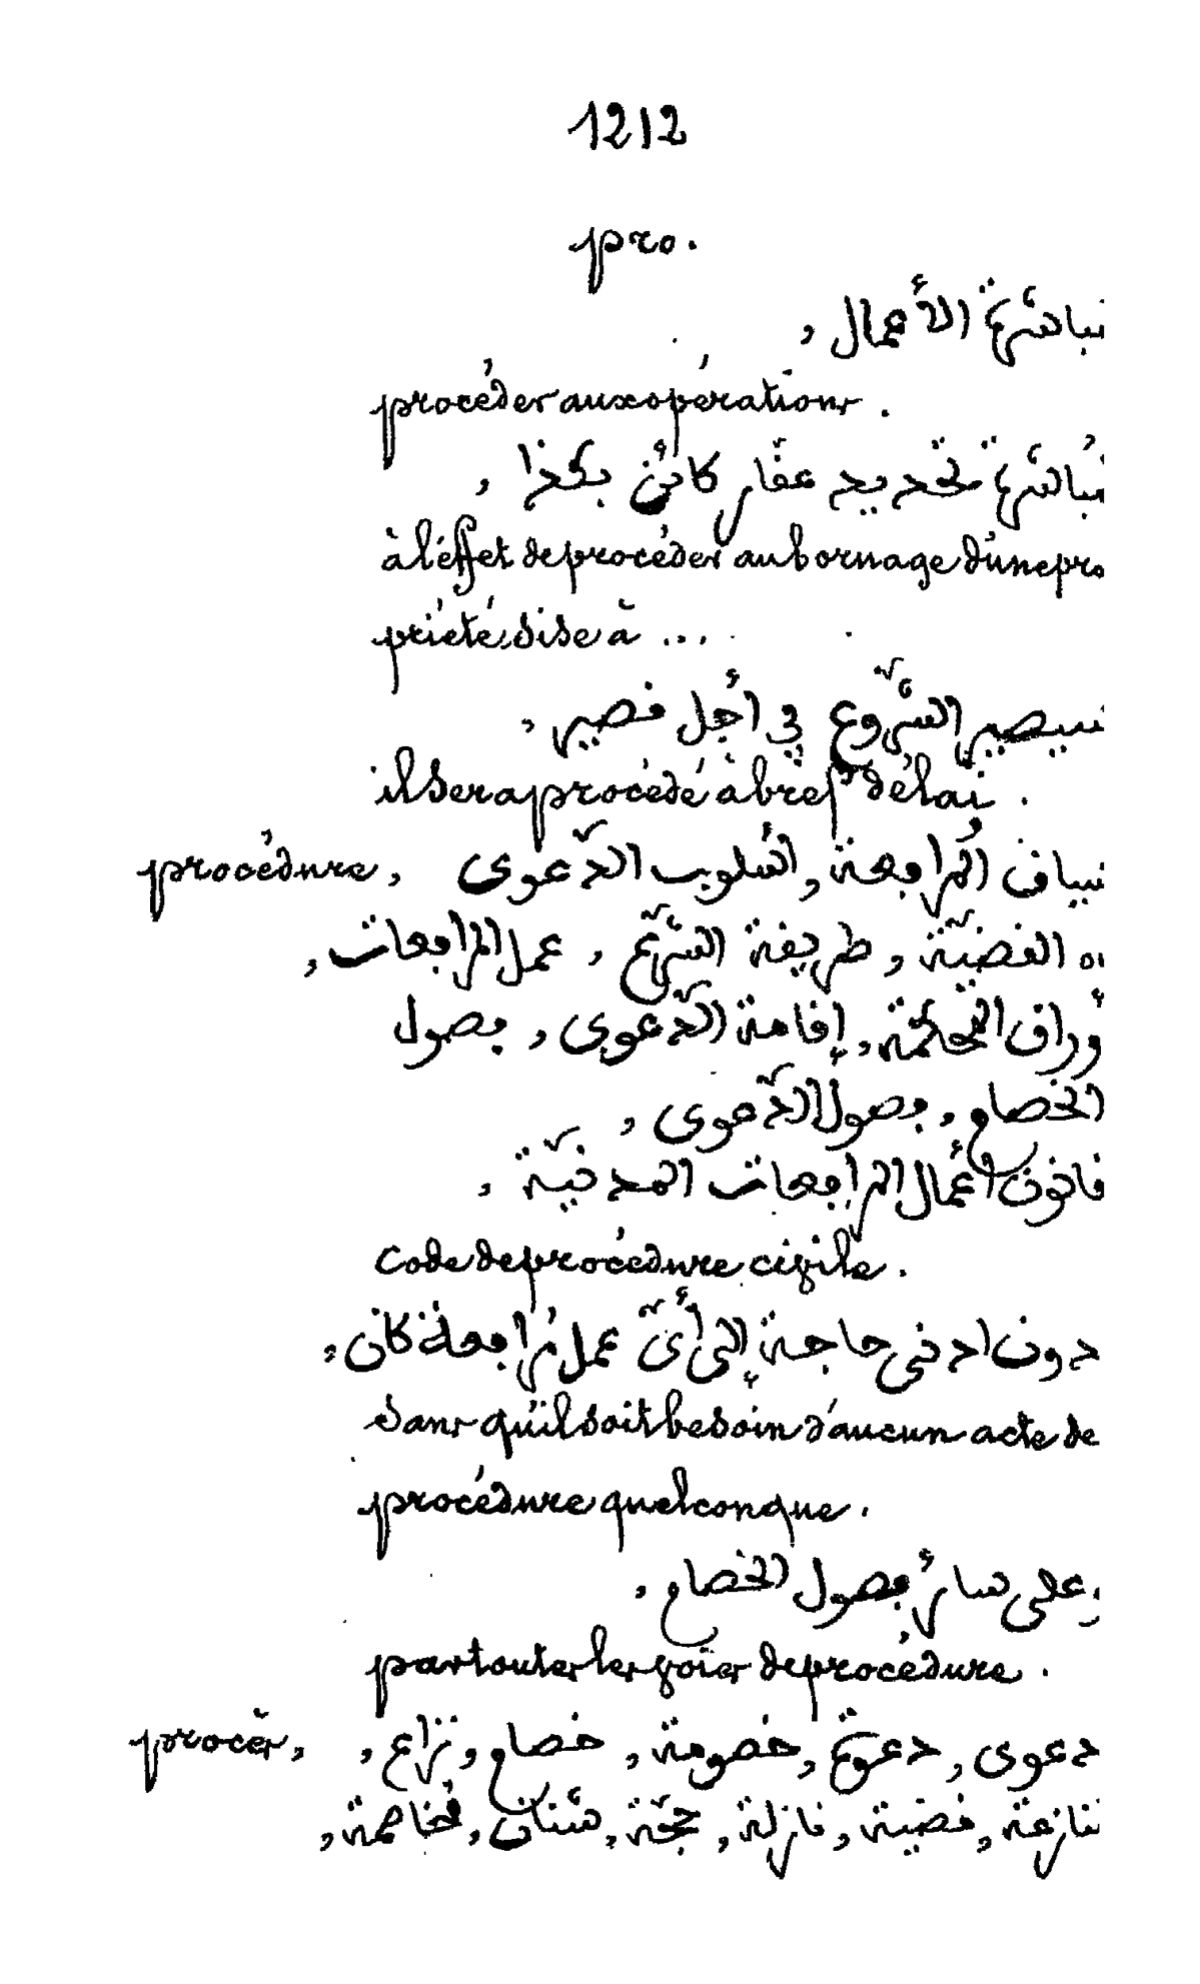 1212
pro.
مباشرة الأعمال,
procéder aux opérations.
مُباشرة تحديد عقار كائن بكذا,
à l'effet de procéder au bornage d'une pro
priété sise à ...
سيصير الشّروع في أجل قصير,
il sera procédé à bref délai.
procédure, سياق المُرافعة, أسلوب الدّعوى
القضيّة, طريقة الشّرع, عمل المرافعات,
أوراق المحكمة, إقامة الدّعوى, فصول
الخصام, فصول الدّعوى,
قانون أعمال المرافعات المدنيّة,
Code de procédure civile.
دون ادنى حاجة إلى أىّ عمل مُرافعة كان,
sans qu'il soit besoin d'aucun acte de
procédure quelconque.
وعلى سائر فصول الخصام,
par toutes les voies de procédure.
procès, دعوى, دعوة, خصومة, خصام, نزاع,
منازعة, قضية, نازلة, حجّة, شنان, مُخاصمة,